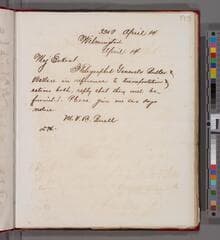 3240 April 14
Wilmington
April 14
My Eckert
I telegraphed Generals Butler &
Wallace in reference to transportation &
rations both reply that they must be
furnish'd. Please give me one days
notice
M. V. B. Buell